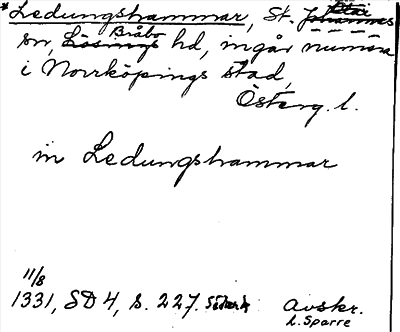 *Ledungshammar, St. Johannes
sn, Lösings Bråbo hd, ingår numera
i Norrköpings stad,
Österg. l.
in Ledungshammar
11/8
1331, SD 4, s. 227.
Avskr.
L. Sparre